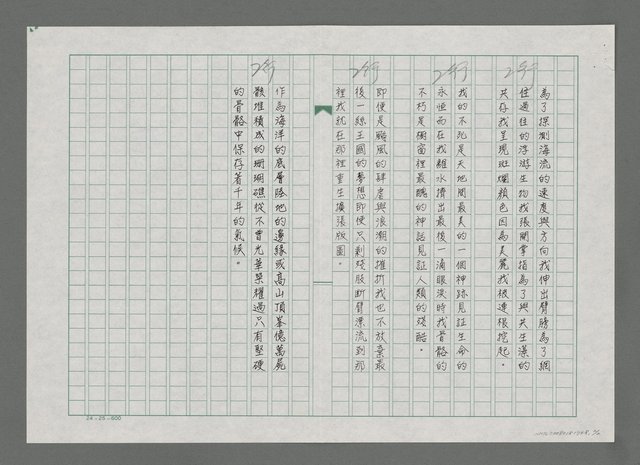 2行
為了探測海流的速度與方向我伸出臂膀為了網
住過往的浮游生物我張開掌指為了與共生藻的
共存我呈現斑斕顏色因為美麗我被連根挖起。
2行
我的不死是天地間最美的一個神跡見証生命的
永恒而在我離水擠出最後一滴眼淚時我骨骼的
不朽是櫥窗裡最醜的神話見証人類的殘酷。
2行
即便是颱風的肆虐與浪潮的摧折我也不放棄最
後一絲王國的夢想即使只剩殘肢斷臂漂流到那
裡我就在那裡重生擴張版圖。
2行
作為海洋的底層陸地的邊緣或高山頂峯億萬屍
骸堆積成的珊瑚礁從不曾光華榮耀過只有堅硬
的骨骼中保存著千年的氣候。
24×25=600